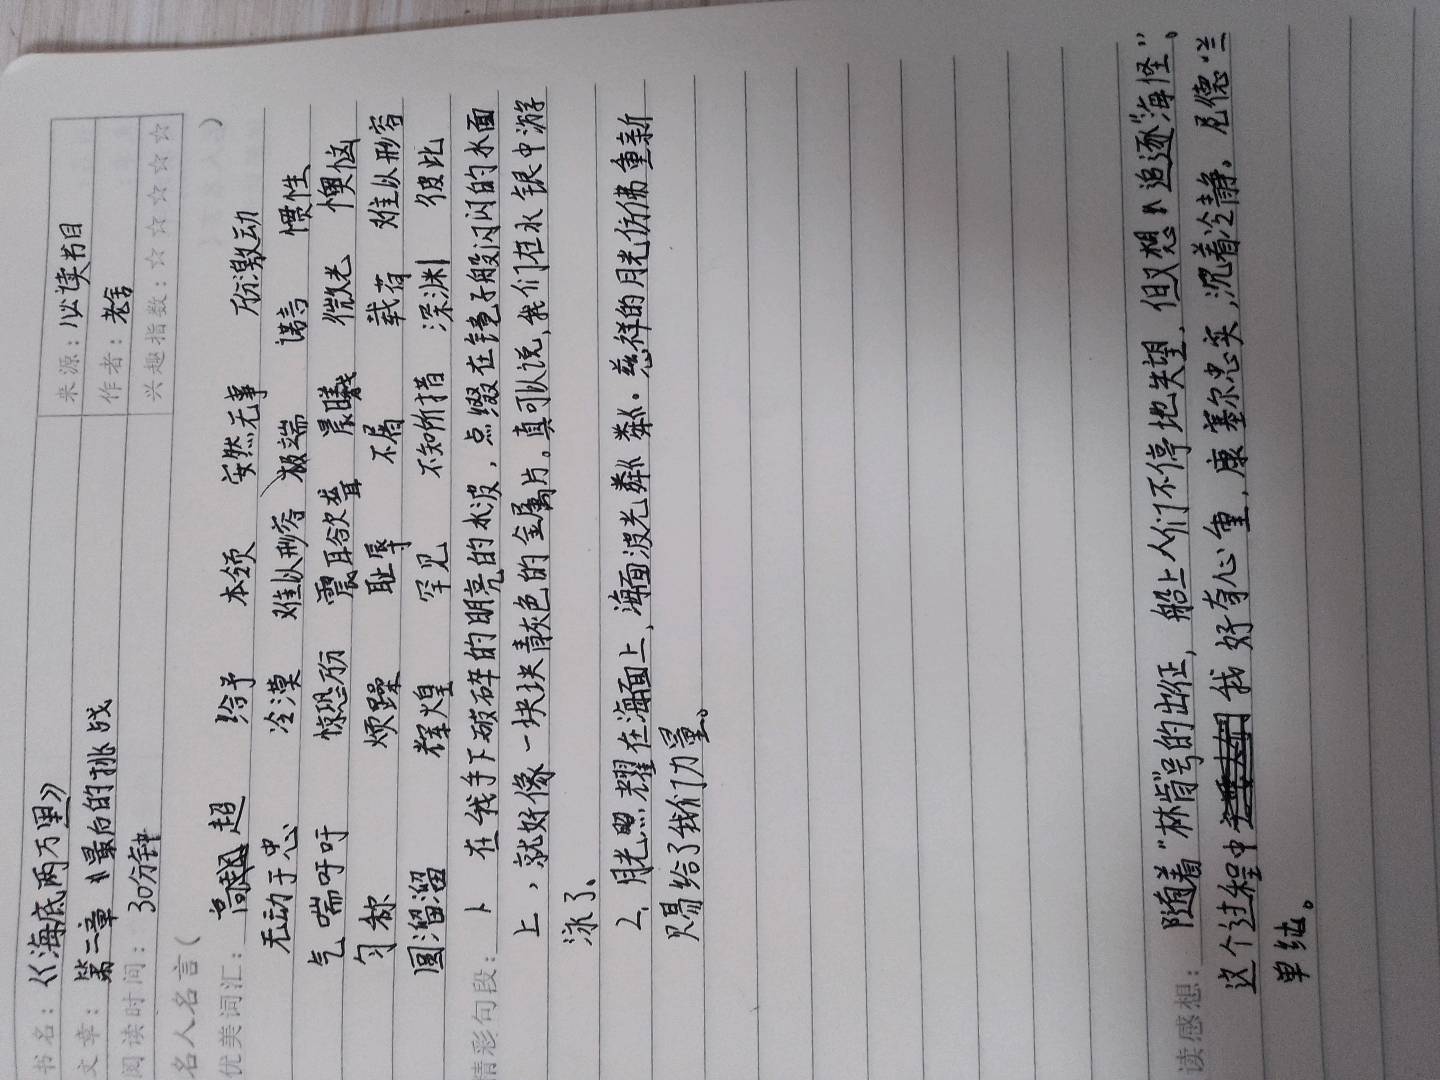 书名：《海底两万里》 来源：必读书目
文章：第二章《最后的挑战 作者：老舍
阅读时间：30分钟 兴趣指数：☆☆☆☆☆
名人名言（ ）
优美词汇：高超 给予 本领 安然无事 万分激动
无动于衷 冷漠 难以形容 极端 惯性
气喘吁吁 惊恐万分 震耳欲聋 晨曦 微光 懊恼
匀称 烦躁 耻辱 不屑 载荷 难以形容
圆溜溜 辉煌 罕见 不知所措 深渊 彼此
精彩句段：1、在我手下破碎的明亮的水波，点缀在镜子般闪闪的水面
上，就好像一块块青灰色的金属片。真可以说，我们在水银中游
泳了。
2、月光照耀在海面上，海面波光粼粼。慈祥的月光仿佛重新
赐给了我们力量。
读感想：随着“林肯”号的出征，船上人们不停地失望，但又想“追逐”海怪”。
这个过程中我好奇心重，康塞尔忠实，沉着冷静。尼德·兰
单纯。